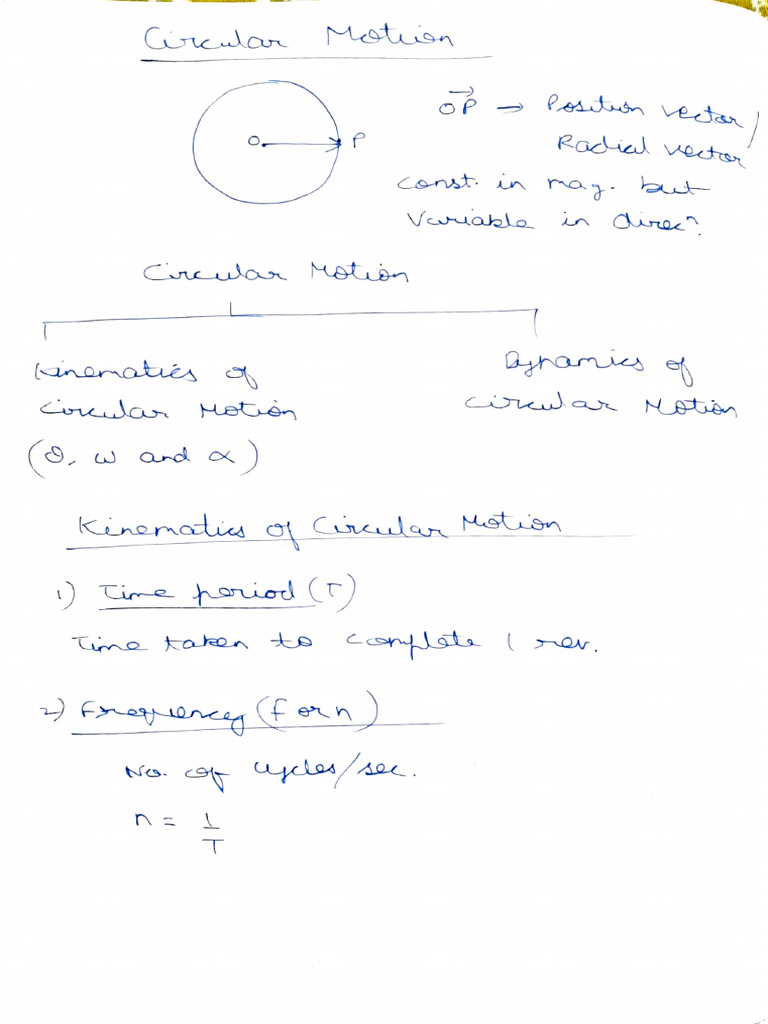 Circular Motion
O P
OP → Position vector/
Radial vector
const. in mag. but
variable in direcⁿ.
Circular Motion
Kinematics of
Circular Motion
(θ, ω and α)
Dynamics of
Circular Motion
Kinematics of Circular Motion
1) Time period (T)
Time taken to complete 1 rev.
2) Frequency (f or n)
No. of cycles/sec.
n = 1/T